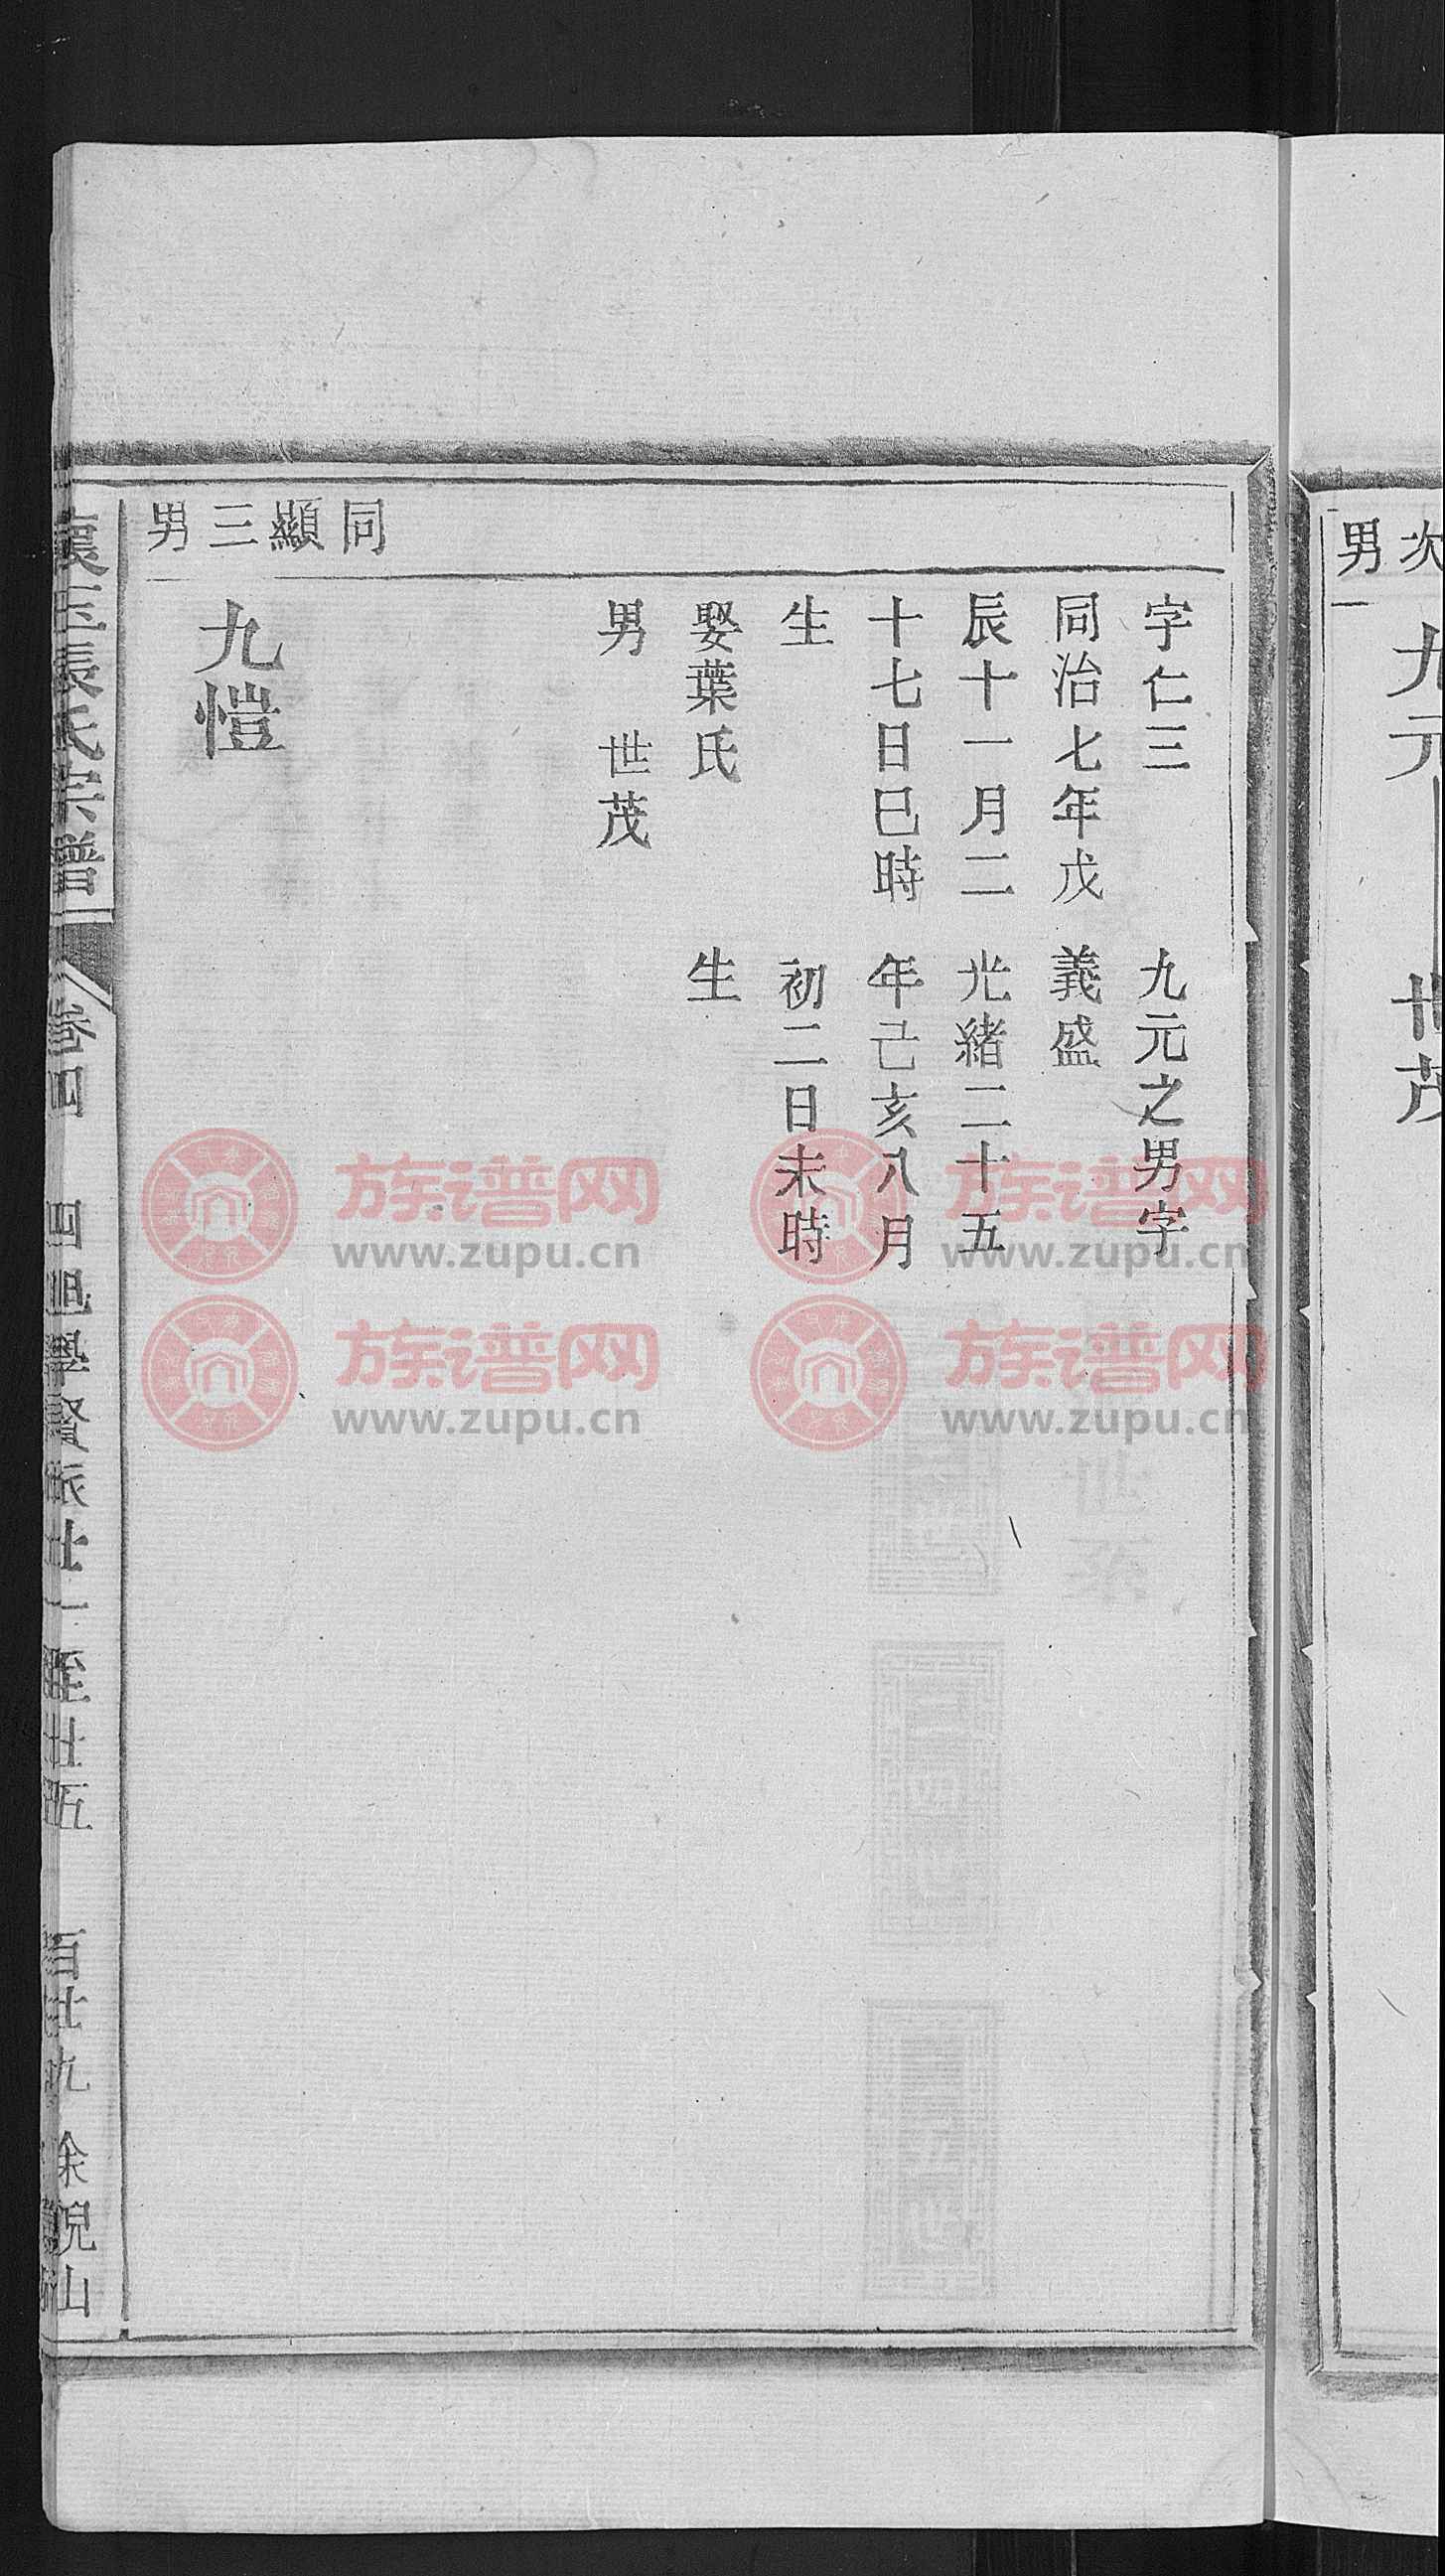 次男
九元
世茂
字仁三
同治七年戊
辰十一月二
十七日巳時
生
娶葉氏
男 世茂
九元之男字
義盛
光緒二十五
年己亥八月
初二日未時
生
同顯三男
九愷
張氏宗譜
卷四
百廿九
余峴山
族谱网
www.zupu.cn
族谱网
www.zupu.cn
族谱网
www.zupu.cn
族谱网
www.zupu.cn